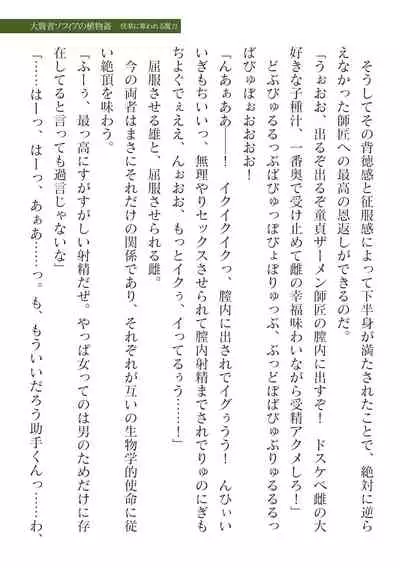 大賢者ソフィアの植物姦　快楽に奪われる魔力
　そうしてその背徳感と征服感によって下半身が満たされたことで、絶対に逆ら
えなかった師匠への最高の恩返しができるのだ。
「うぉおお、出るぞ出るぞ童貞ザーメン師匠の膣内に出すぞ！　ドスケベ雌の大
好きな子種汁、一番奥で受け止めて雌の幸福味わいながら受精アクメしろ！」
　どぶびゅるるっぷばびゅっぽびゅぽりゅっぷ、ぶっどぽばびゅぶりゅるるるっ
ばびゅぼぉおおおお！
「んあぁああ――！　イクイクイクっ、膣内に出されでイグぅうう！　んひぃい
いぎもちいいっ、無理やりセックスさせられて膣内射精までされでりゅのにぎも
ちよぐでぇええ、んぉおお、もっとイクぅ、イってるぅう……！」
　屈服させる雄と、屈服させられる雌。
　今の両者はまさにそれだけの関係であり、それぞれが互いの生物学的使命に従
い絶頂を味わう。
「ふーぅ、最っ高にすがすがしい射精だぜ。やっぱ女ってのは男のためだけに存
在してると言っても過言じゃないな」
「……はーっ、はーっ、あぁあ……っ。も、もういいだろう助手くんっ……わ、